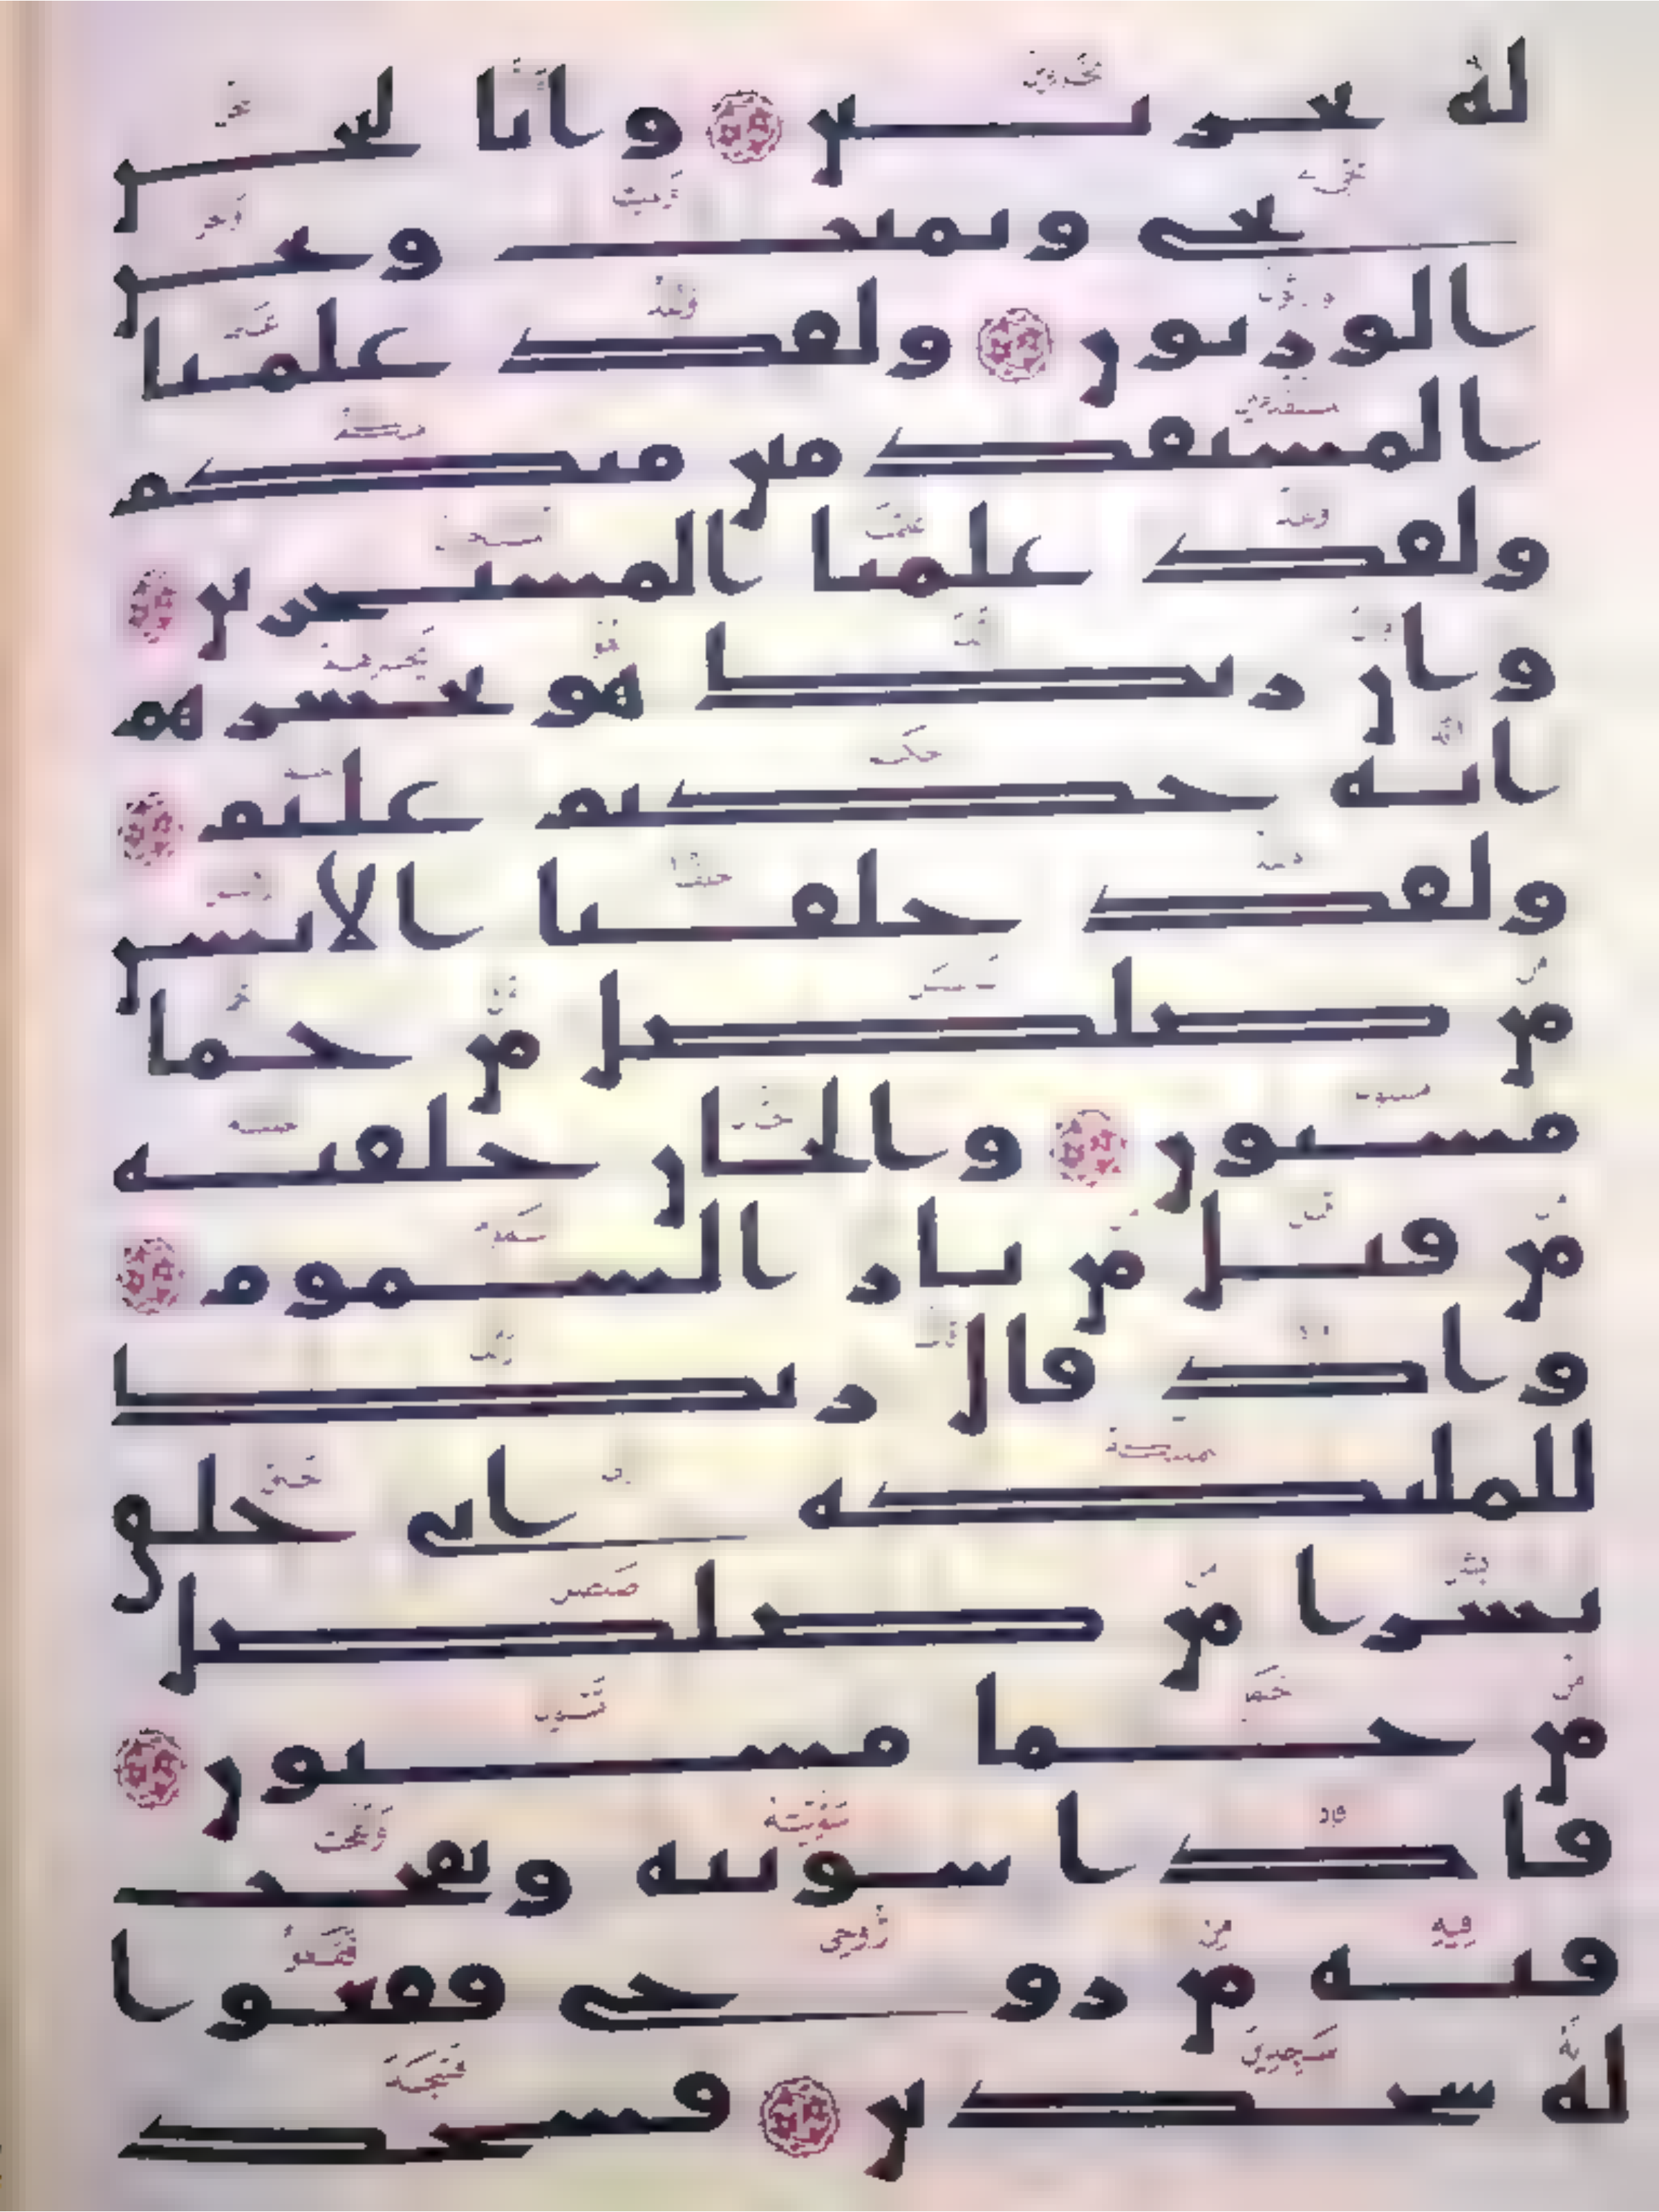 له بخزنين وانا لنحن
نحي ونميت ونحن
الورثون ولقد علمنا
المستقدمين منكم
ولقد علمنا المستخرين
وان ربك هو يحشرهم
انه حكيم عليم
ولقد خلقنا الانسن
من صلصل من حما
مسنون والجان خلقنه
من قبل من نار السموم
واذ قال ربك
للملئكة اني خلق
بشرا من صلصل
من حما مسنون
فاذا سويته ونفخت
فيه من روحي فقعوا
له سجدين فسجد